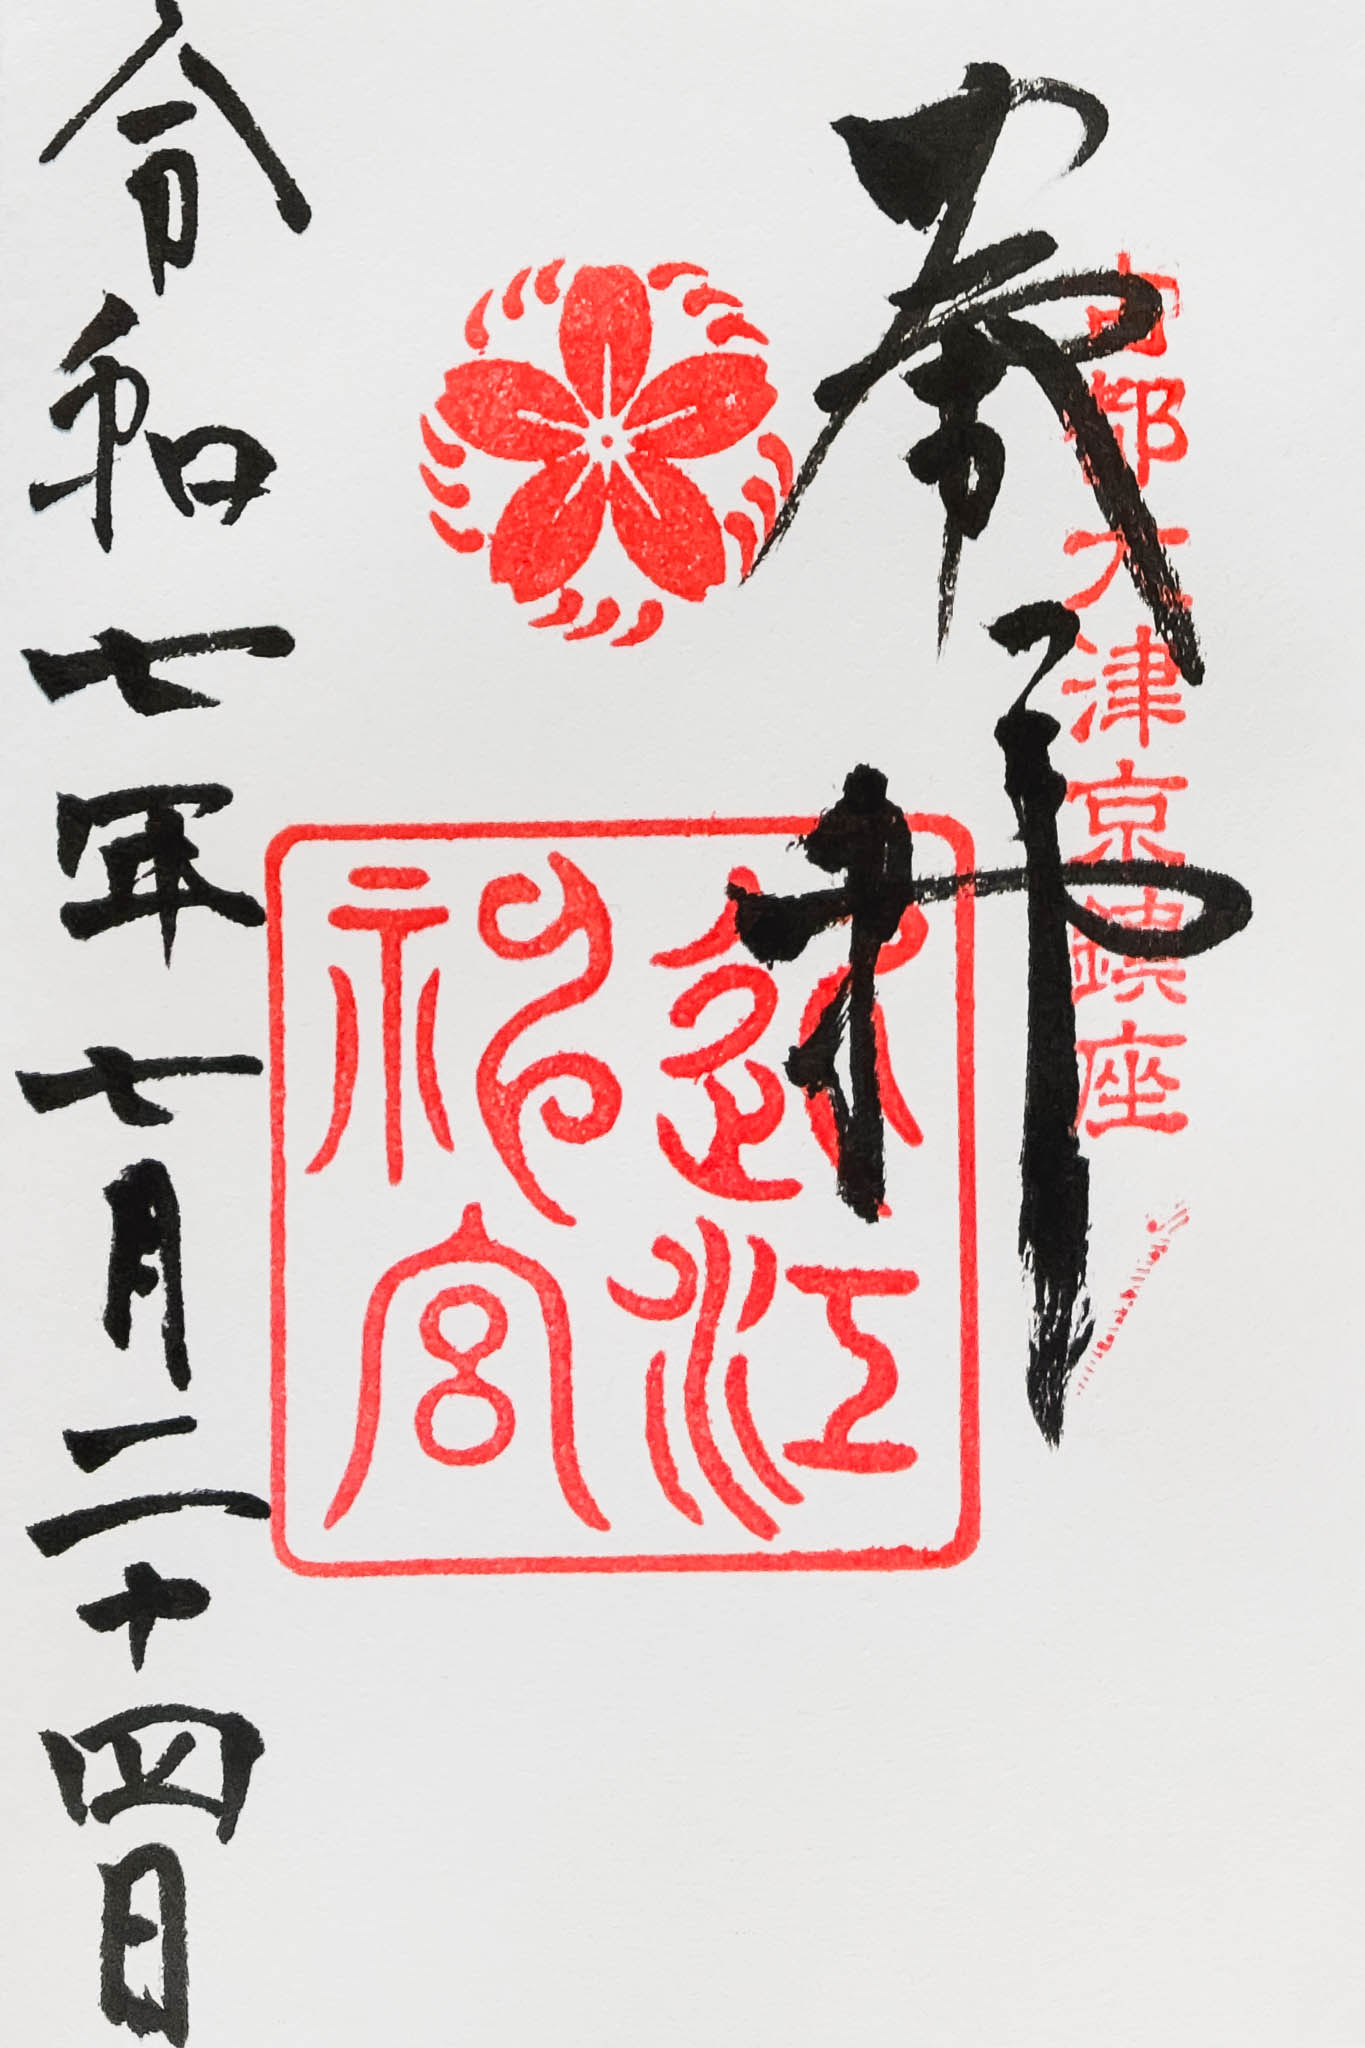 奉拝
古都大津京鎮座
近江神宮
令和七年七月二十四日